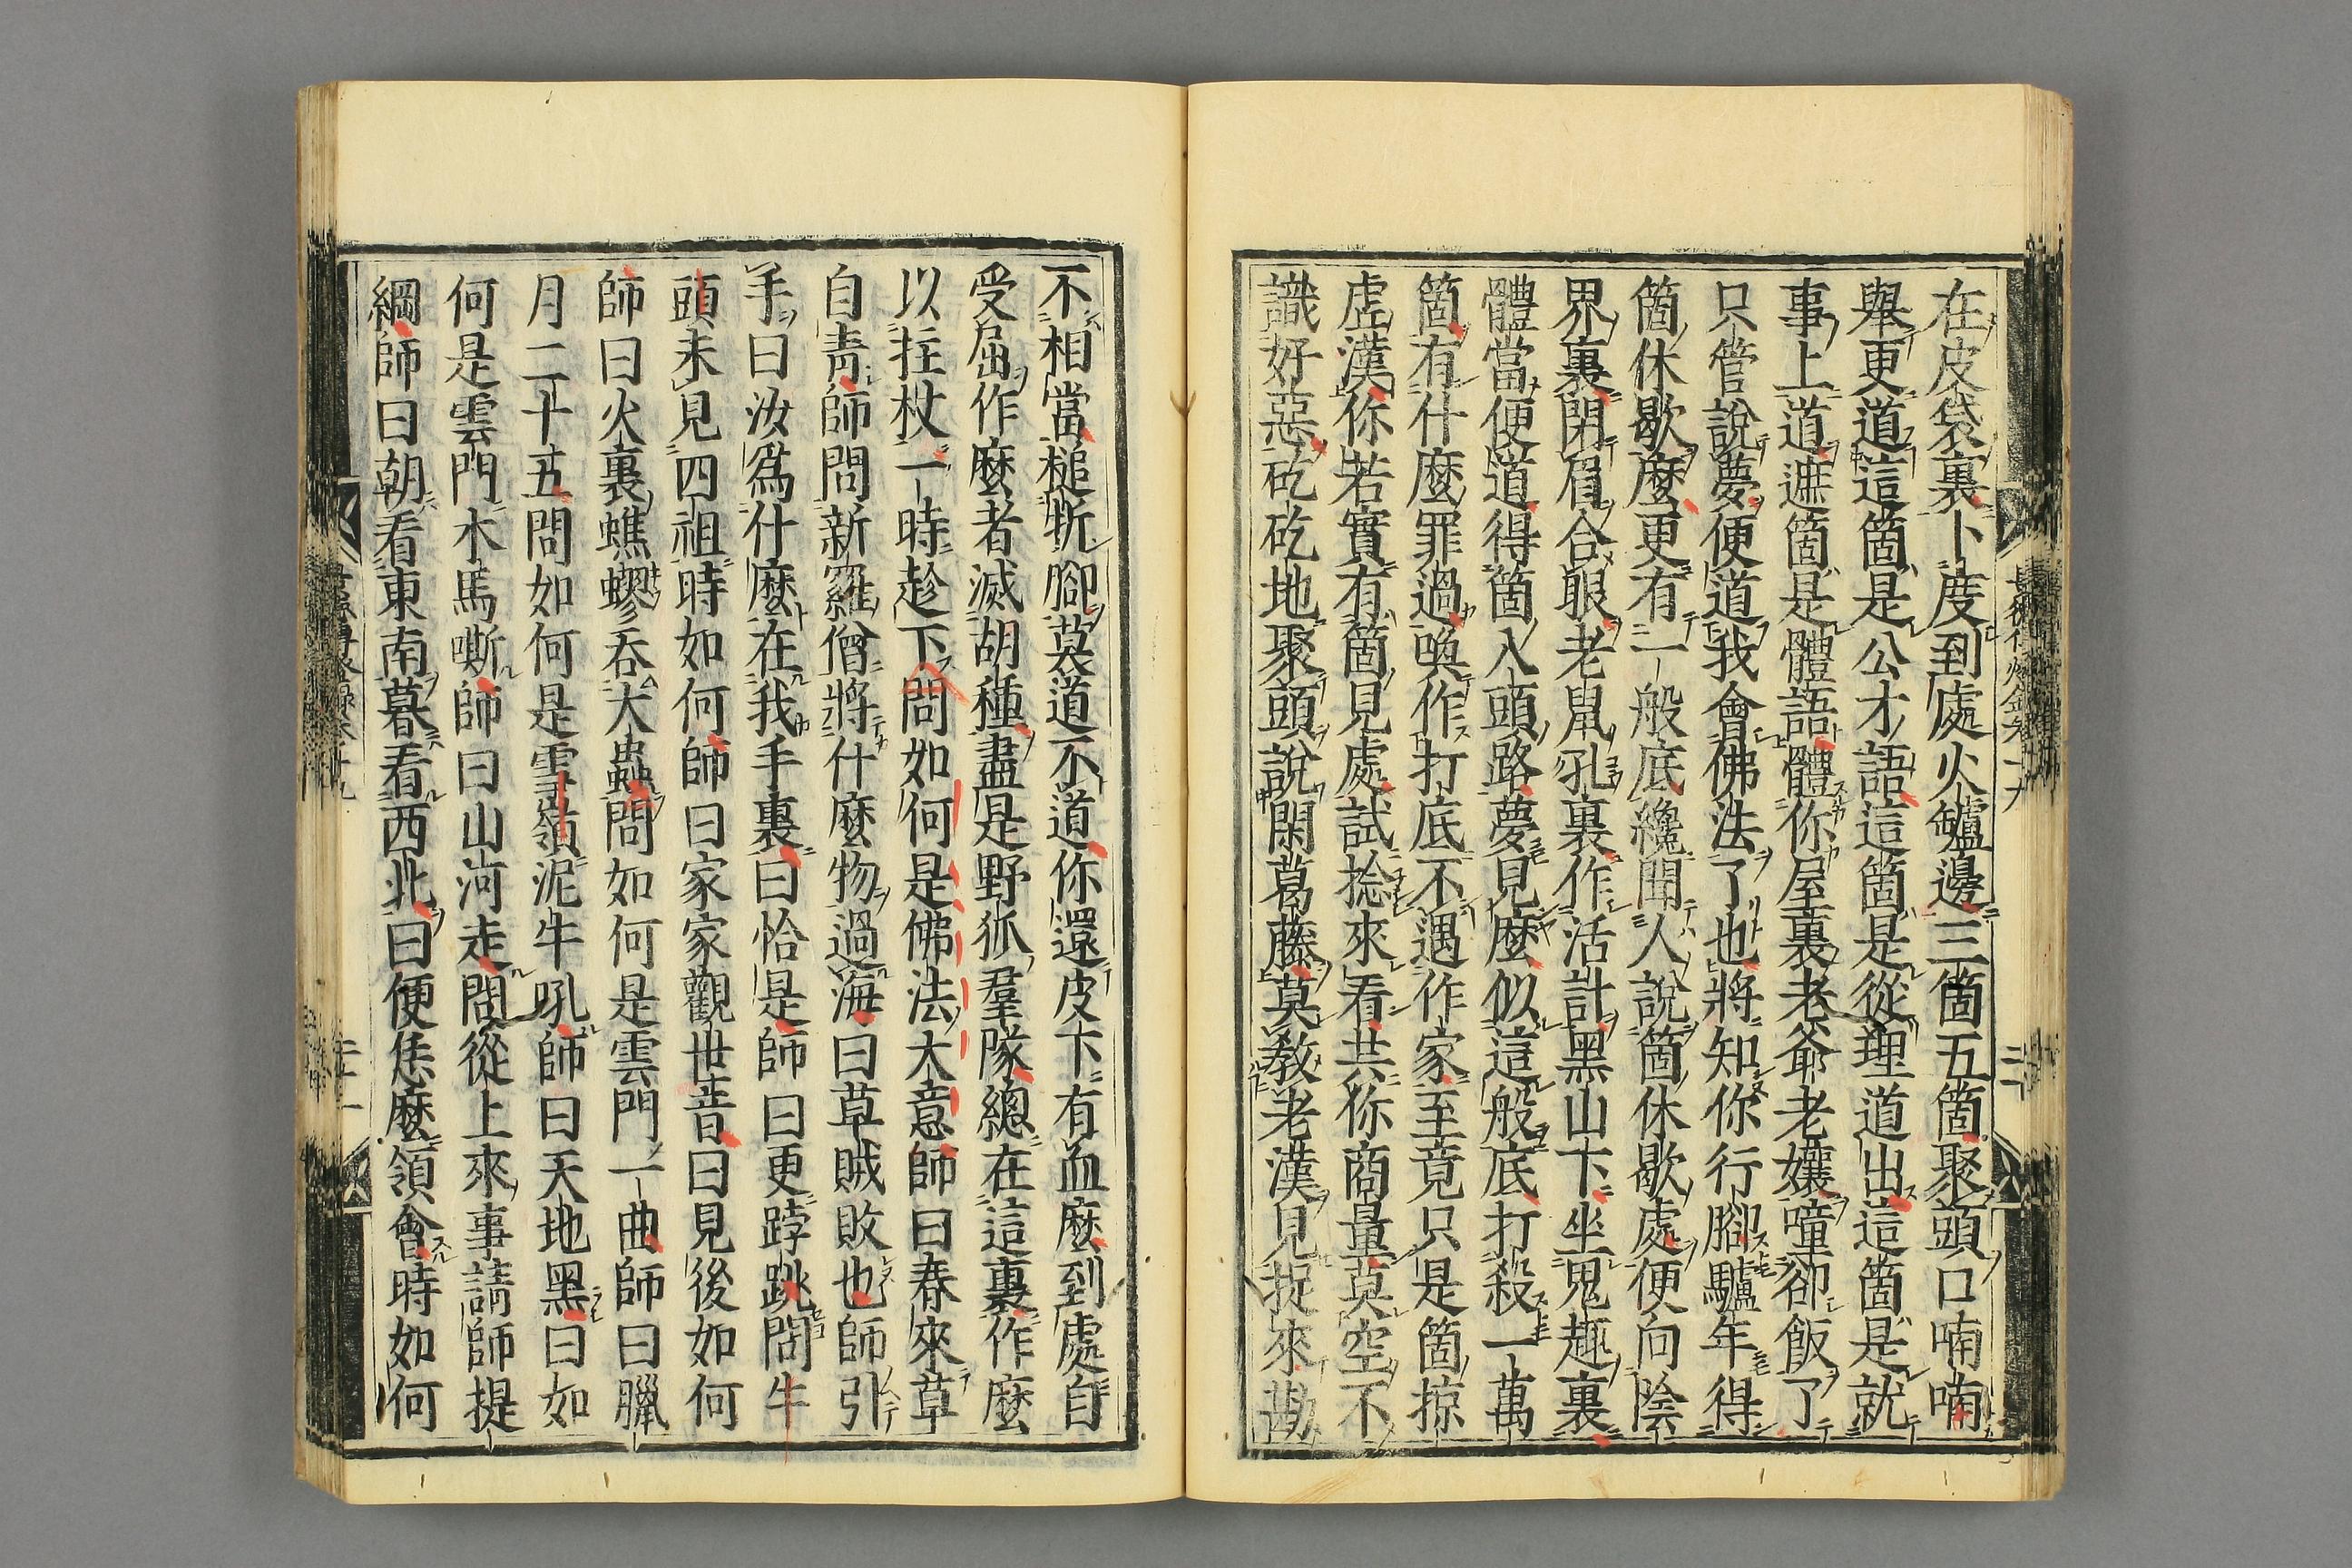 在皮袋裏卜度到處火鑪邊三箇五箇聚頭口喃喃
舉更道這箇是公才語這箇是從理道出這箇是就
事上道遮箇是體語體你屋裏老爺老孃噇卻飯了
只管說夢便道我會佛法了也將知你行腳驢年得
箇休歇麼更有一般底纔聞人說箇休歇處便向陰
界裏閉眉合眼老鼠孔裏作活計黑山下坐鬼趣裏
體當便道得箇入頭路夢見麼似這般底打殺一萬
箇有什麼罪過喚作打底不遇作家至竟只是箇掠
虛漢你若實有箇見處試捻來看共你商量莫空不
識好惡矻矻地聚頭說閑葛藤莫敎老漢見捉來勘
不相當槌折腳莫道不道你還皮下有血麼到處自
受屈作麼者滅胡種盡是野狐羣隊總在這裏作麼
以拄杖一時趁下問如何是佛法大意師曰春來草
自靑師問新羅僧將什麼物過海曰草賊敗也師引
手曰汝爲什麼在我手裏曰恰是師曰更䟦跳問牛
頭未見四祖時如何師曰家家觀世音曰見後如何
師曰火裏蟭蟟吞大蟲問如何是雲門一曲師曰臘
月二十五問如何是雪嶺泥牛吼師曰天地黑曰如
何是雲門木馬嘶師曰山河走問從上來事請師提
綱師曰朝看東南暮看西北曰便恁麼領會時如何